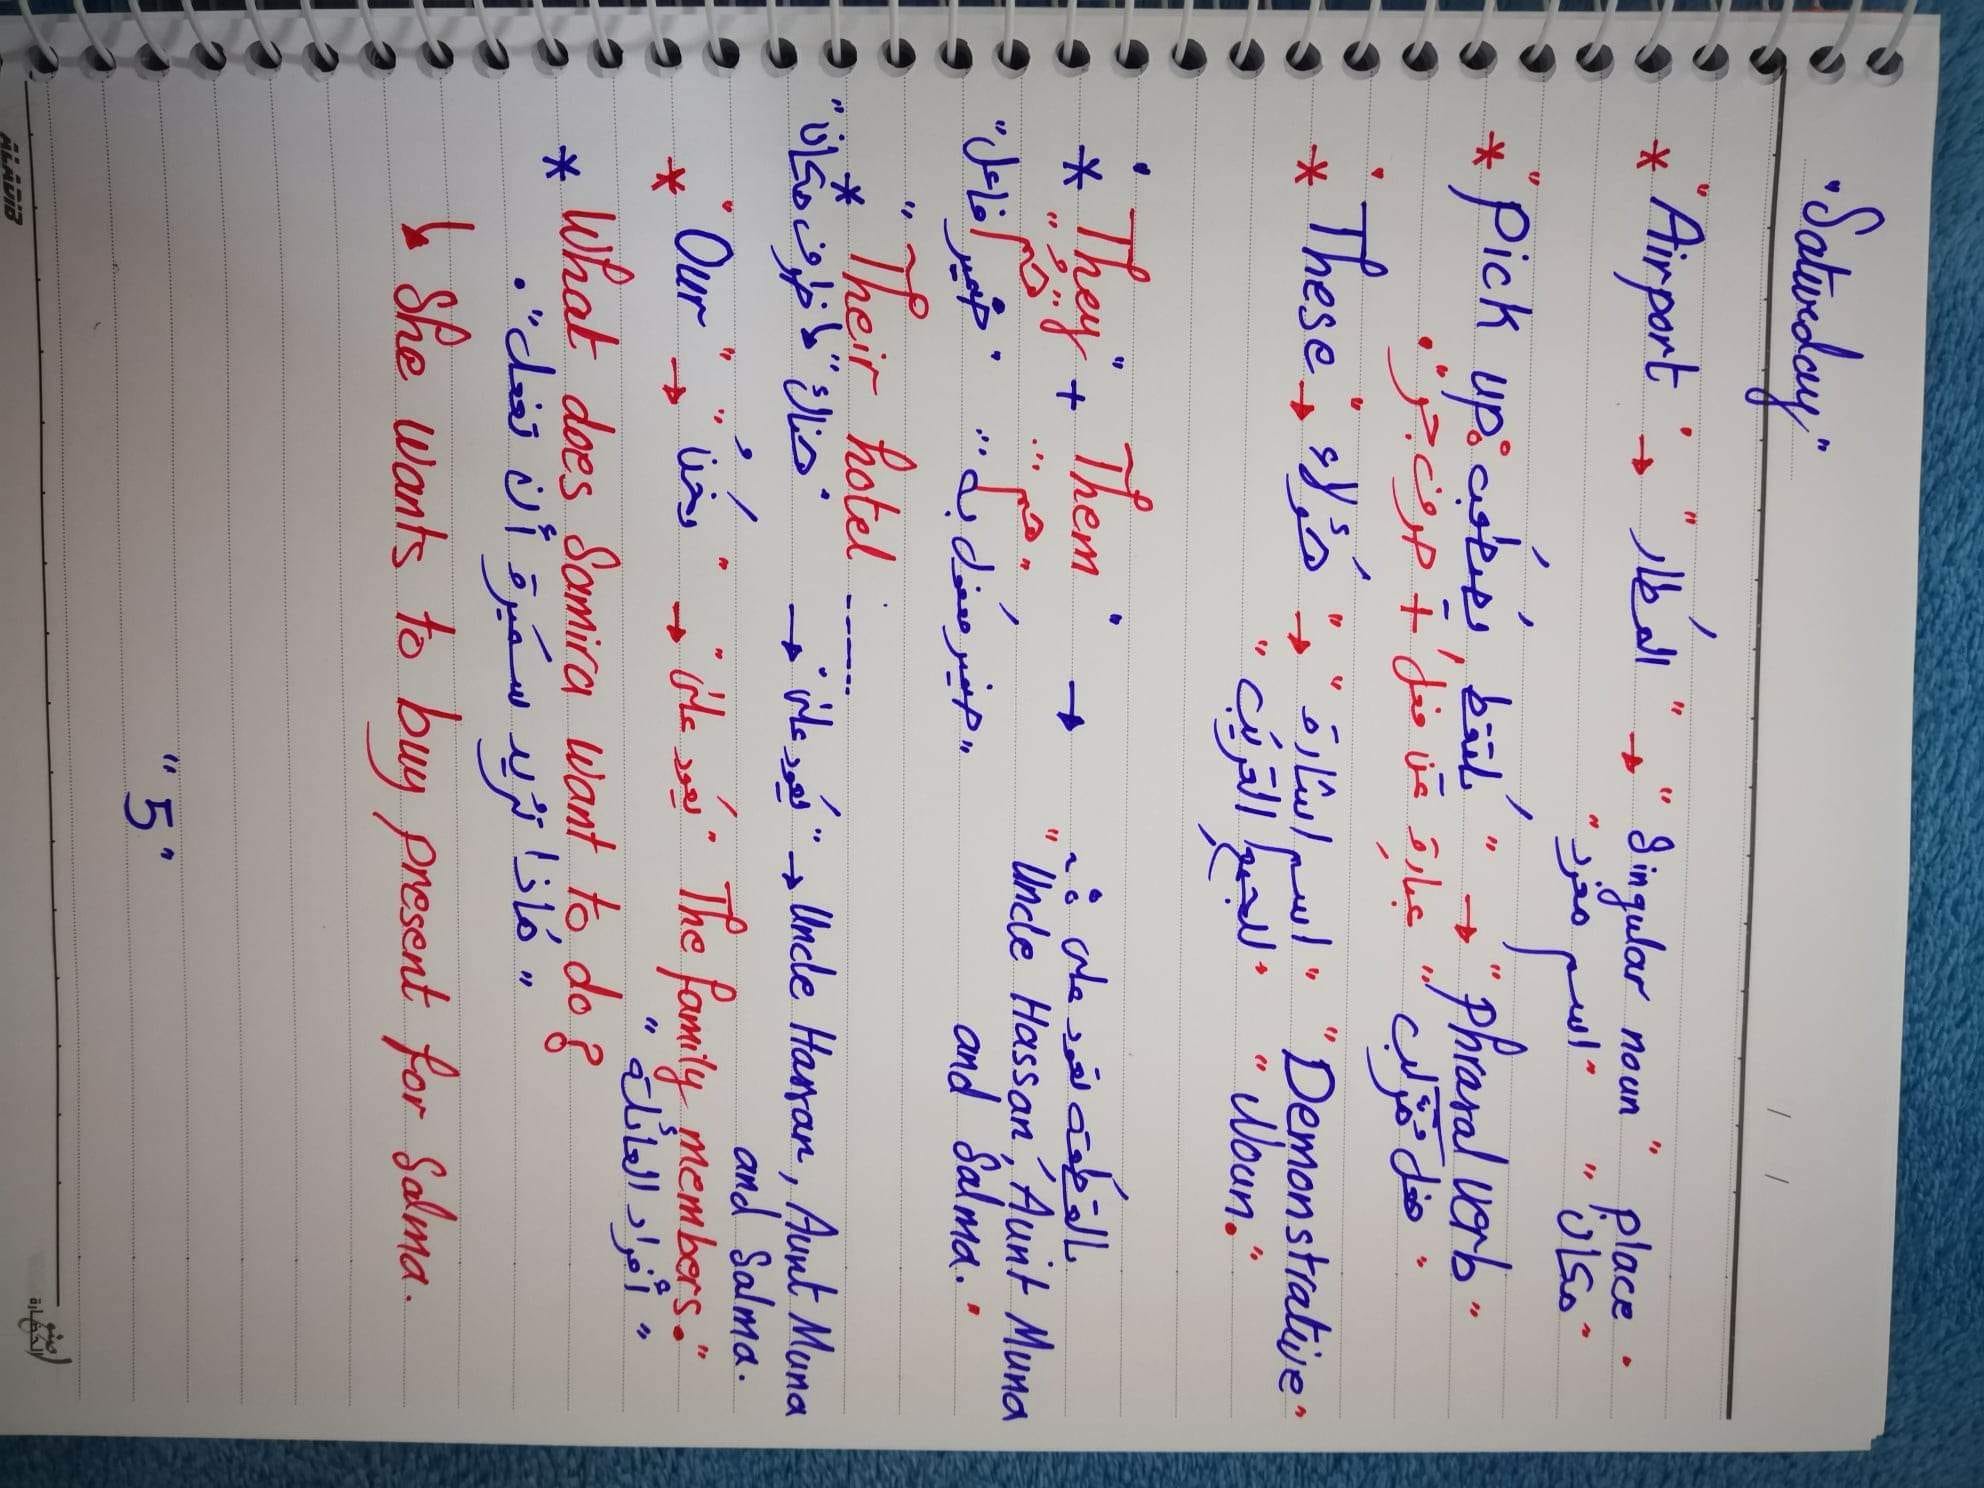 "Saturday"
/ /
* "Airport" → "المطار" → "Singular noun" place.
"اسم مفرد" "مكان"
* "Pick up: يصطحب، يلتقط" → "Phrasal verb"
"عبارة عن فعل + حرف جر". "فعل مركب"
* "These → هؤلاء" → "اسم اشارة" "Demonstrative"
"للجمع القريب" "Noun."
* "They" + Them" → بالقطعة تعود على:
"هم" "هم" "Uncle Hassan, Aunt Muna
"ضمير فاعل" "ضمير مفعول به" and Salma."
* "Their hotel ------
"هناك" "ظرف مكان" → "يعود على" → Uncle Hassan, Aunt Muna
and Salma.
* "Our" → "نحن" → "يعود على" The family members."
"أفراد العائلة"
* What does Samira want to do?
"ماذا تريد سميرة أن تفعل".
↳ She wants to buy present for Salma.
"5"